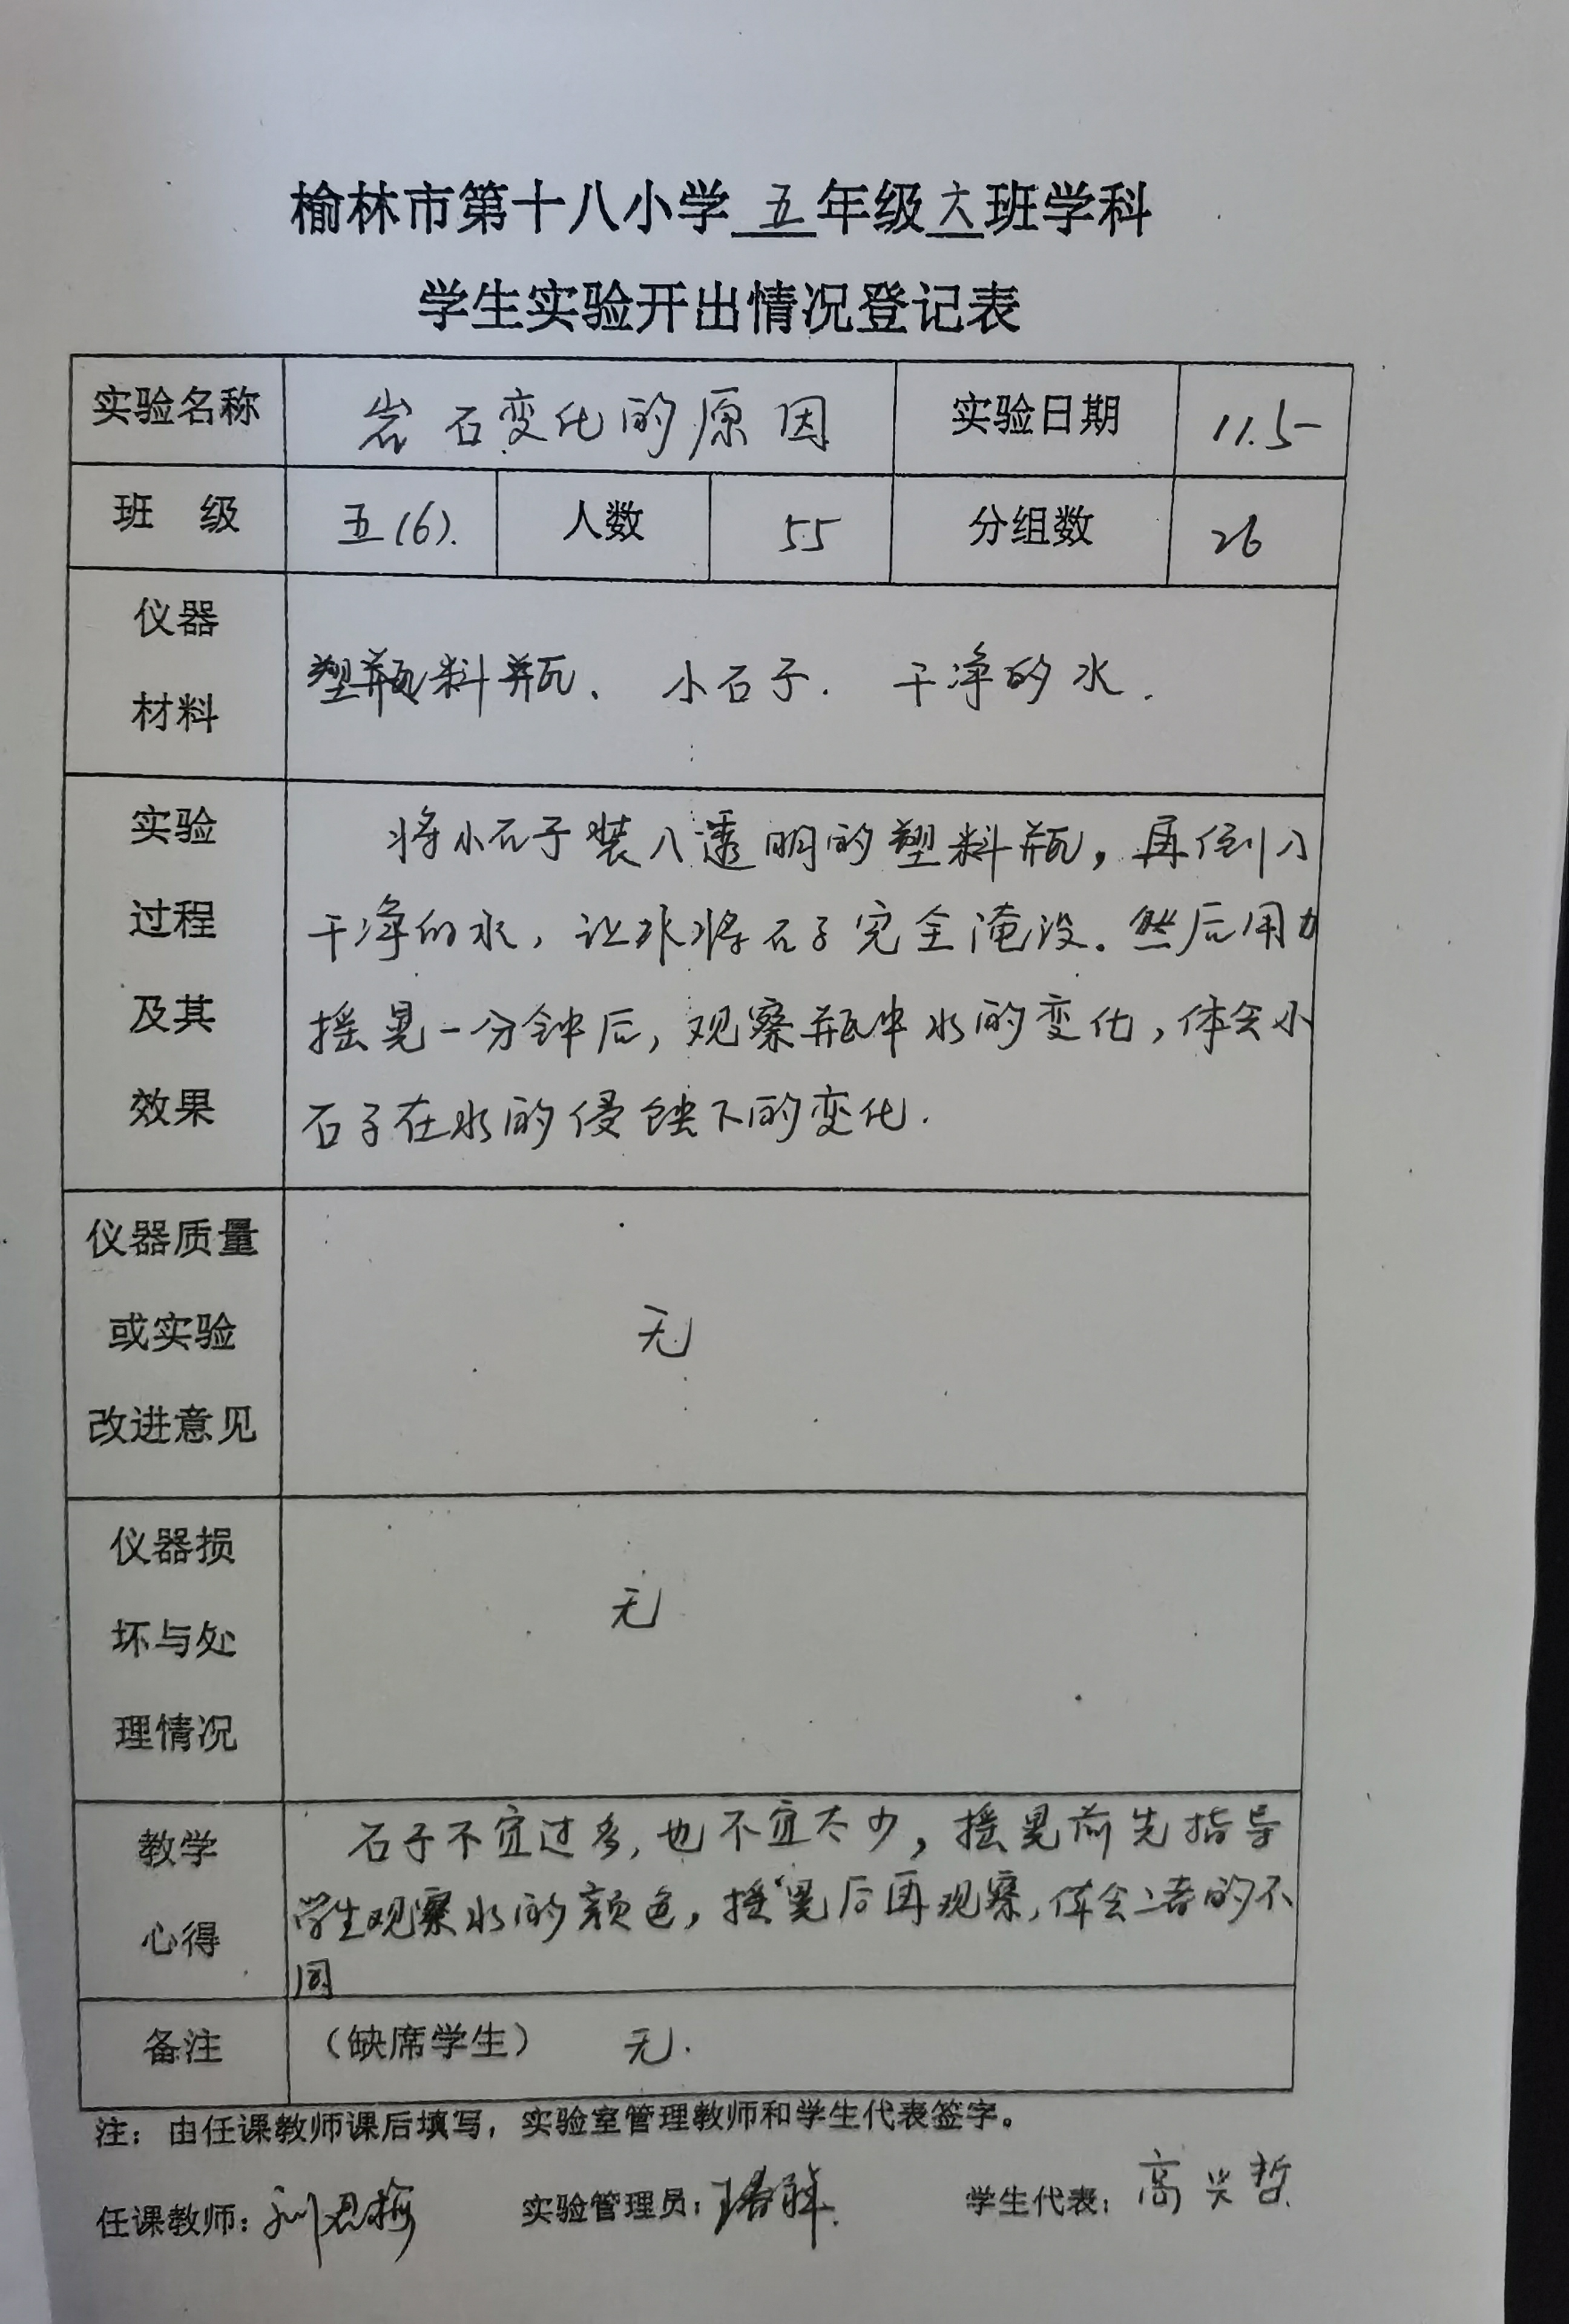 榆林市第十八小学 五 年级 六 班学科
学生实验开出情况登记表
实验名称 岩石变化的原因 实验日期 11.5
班 级 五(6). 人数 55 分组数 26
仪器
材料
塑料瓶、 小石子. 干净的水.
实验
过程
及其
效果
将小石子装入透明的塑料瓶，再倒入
干净的水，让水将石子完全淹没.然后用力
摇晃一分钟后，观察瓶中水的变化，体会小
石子在水的侵蚀下的变化.
仪器质量
或实验
改进意见
无
仪器损
坏与处
理情况
无
教学
心得
石子不宜过多，也不宜太少，摇晃前先指导
学生观察水的颜色，摇晃后再观察，体会二者的不
同
备注 （缺席学生） 无.
注：由任课教师课后填写，实验室管理教师和学生代表签字。
任课教师： 实验管理员： 学生代表：高兴哲